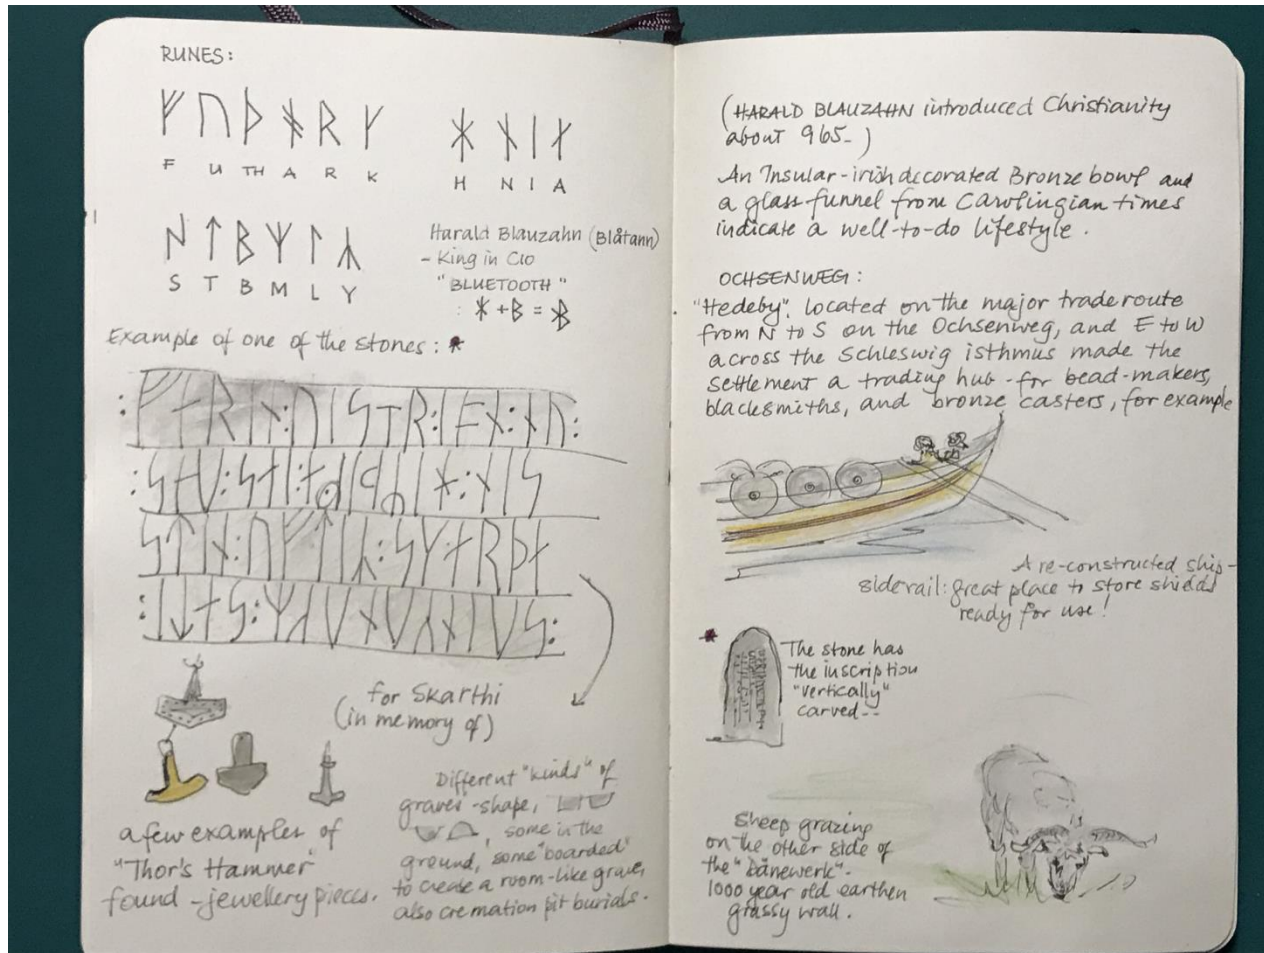 RUNES:
ᚠ ᚢ ᚦ ᚬ ᚱ ᚴ
F U TH A R K
ᚼ ᚾ ᛁ ᛅ
H N I A
ᛋ ᛏ ᛒ ᛘ ᛚ ᛦ
S T B M L Y
Harald Blauzahn (Blåtann)
- King in C10
"BLUETOOTH"
: ᚼ + ᛒ =
Example of one of the stones: *
for Skarthi
(in memory of)
a few examples of
"Thor's Hammer"
found - jewellery pieces.
Different "kinds" of
graves - shape,
, some in the
ground, some "boarded"
to create a room-like grave,
also cremation pit burials.
(HARALD BLAUZAHN introduced Christianity
about 965-)
An Insular-irish decorated Bronze bowl and
a glass funnel from Carolingian times
indicate a well-to-do lifestyle.
OCHSENWEG:
"Hedeby", located on the major trade route
from N to S on the Ochsenweg, and E to W
across the Schleswig isthmus made the
settlement a trading hub - for bead-makers,
blacksmiths, and bronze casters, for example
A re-constructed ship-
side rail: great place to store shields
ready for use!
*
The stone has
the inscription
"vertically"
carved--
Sheep grazing
on the other side of
the "Dänewerk"-
1000 year old earthen
grassy wall.